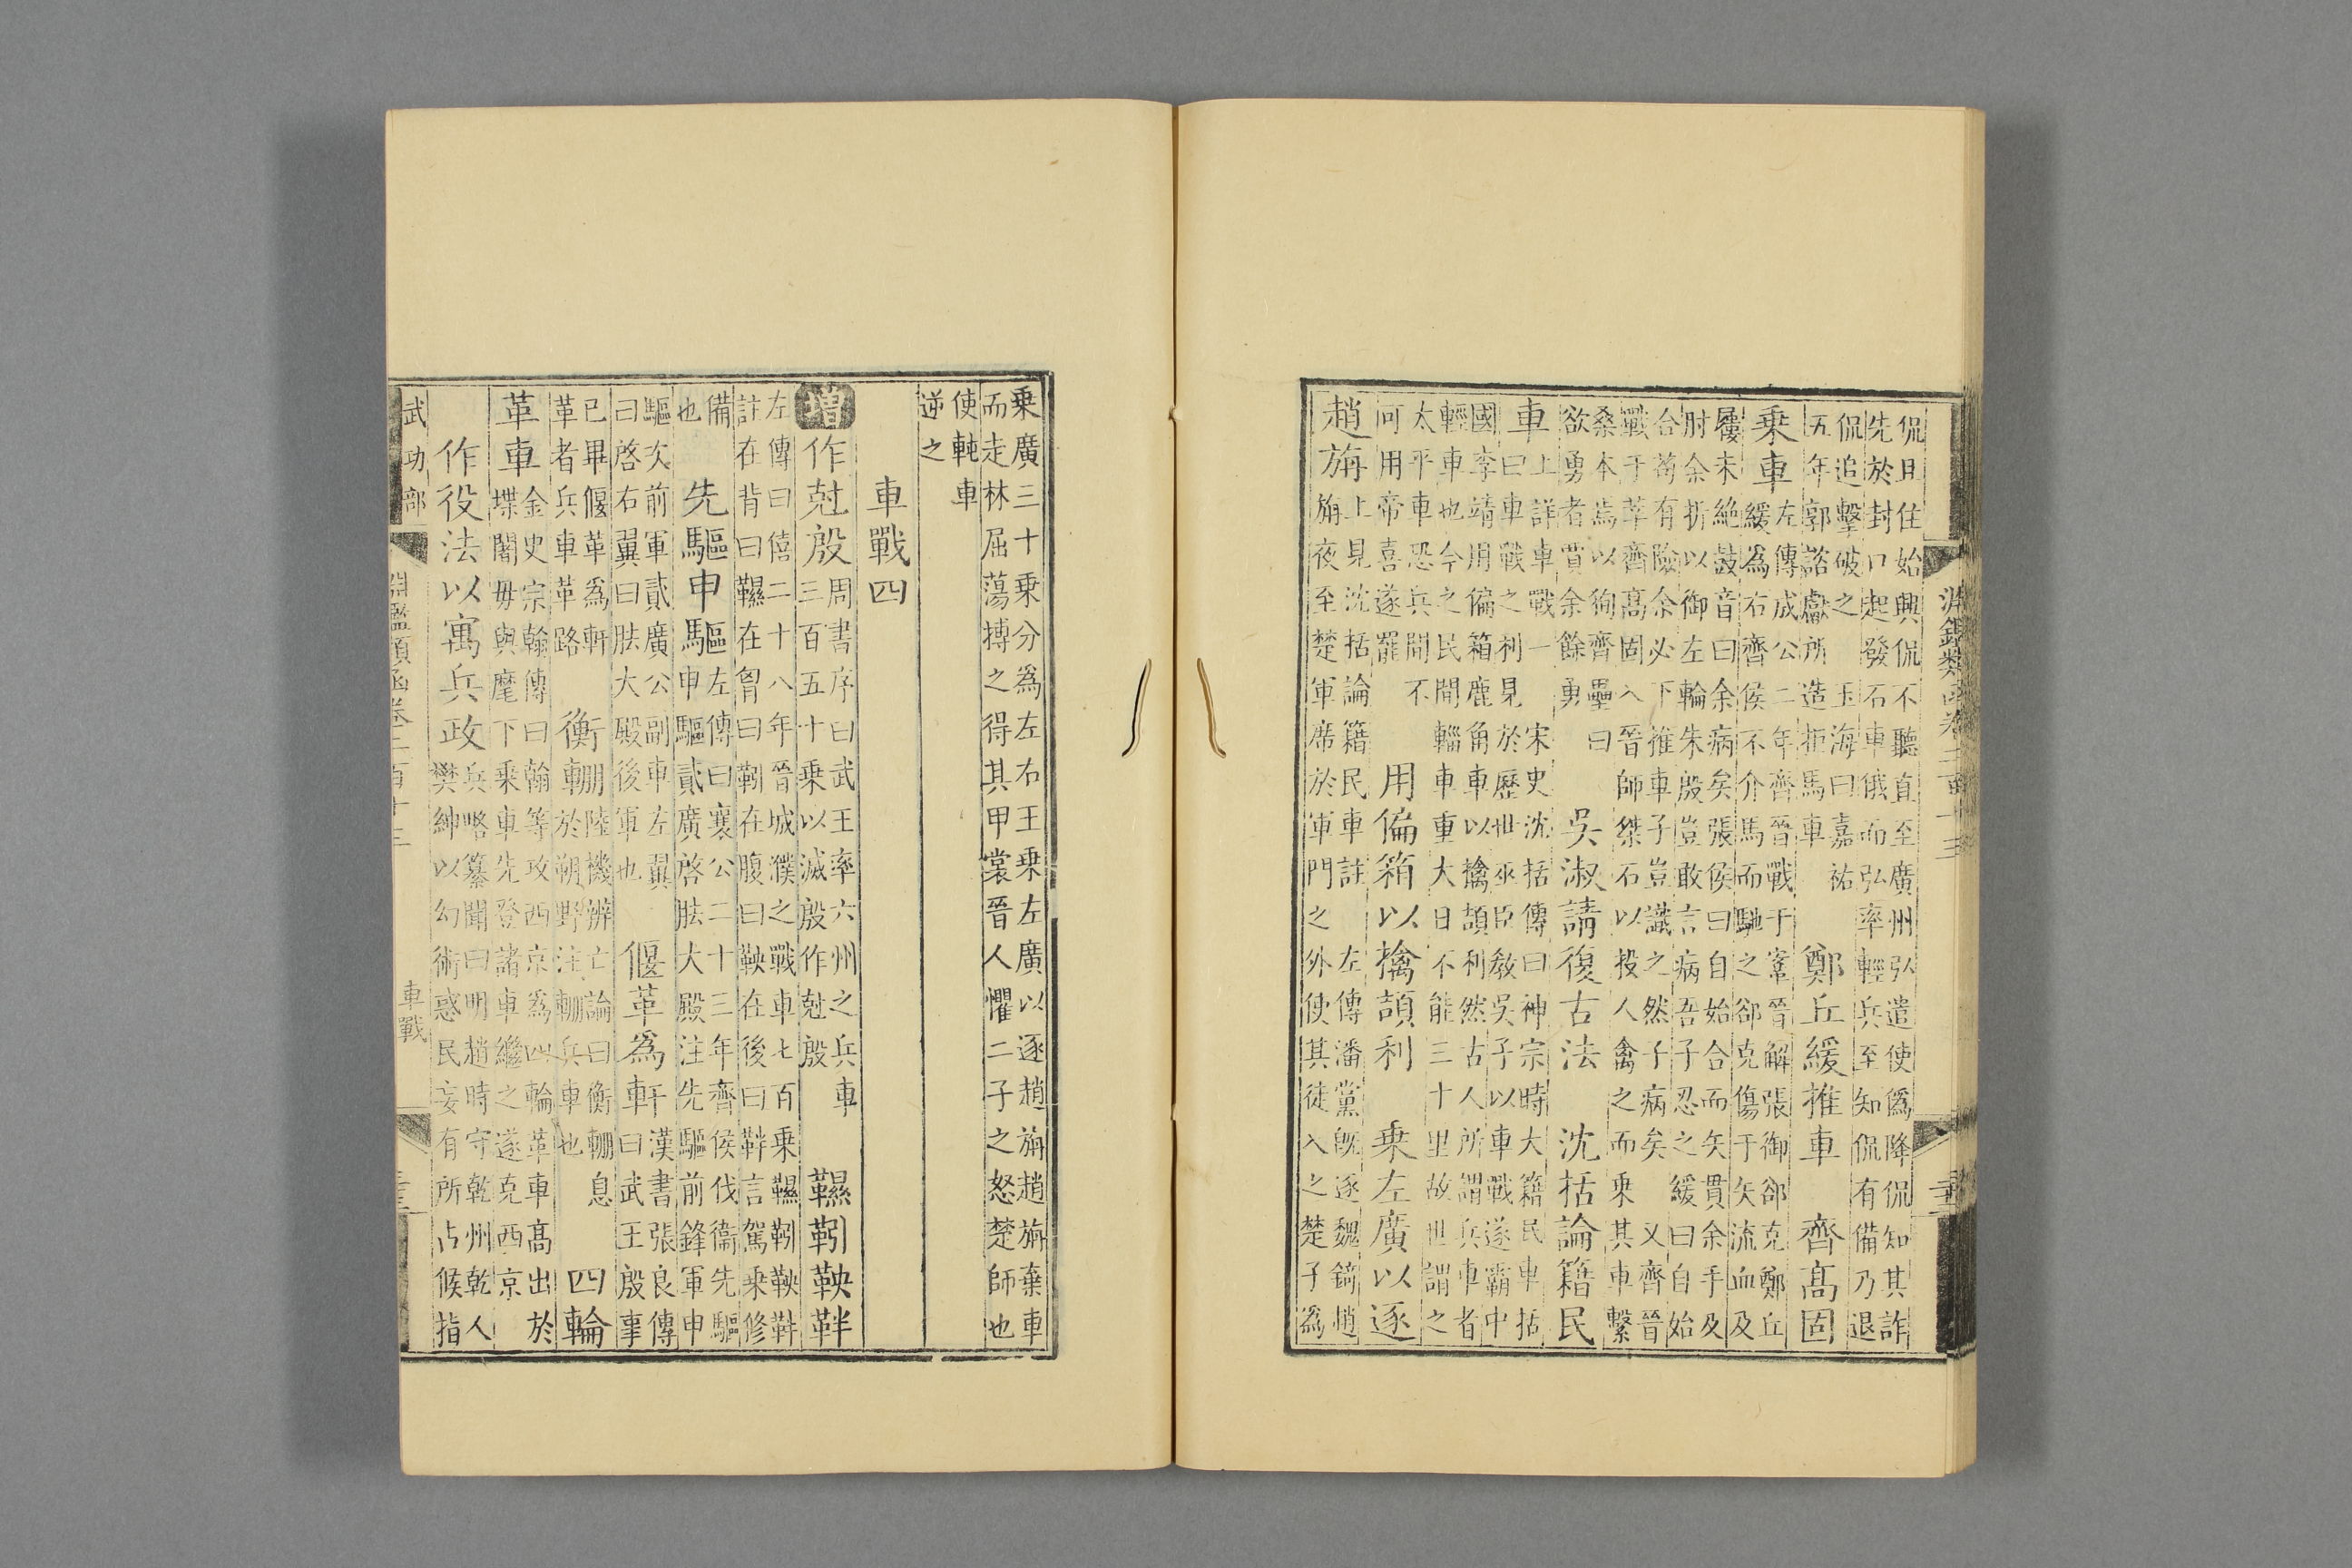 淵鑑類函卷二百一十三
侃且住始興侃不聽直至廣州弘遣使僞降侃知其詐
先於封口起發石車俄而弘率輕兵至知侃有備乃退
侃追擊破之 玉海曰嘉祐
五年郭諮獻所造拒馬車
鄭丘緩推車 齊高固
乘車
左傳成公二年齊晉戰于鞌晉解張御郤克鄭丘
緩爲右齊侯不介馬而馳之郤克傷于矢流血及
屨未絕鼓音曰余病矣張侯曰自始合而矢貫余手及
肘余折以御左輪朱殷豈敢言病吾子忍之緩曰自始
合苟有險余必下推車子豈識之然子病矣 又齊晉
戰于鞌齊高固入晉師桀石以投人禽之而乘其車繫
桑本焉以徇齊壘曰
欲勇者賈余餘勇
吳淑請復古法 沈括論籍民
車
上詳車戰一 宋史沈括傳曰神宗時大籍民車括
曰車戰之利見於歷世巫臣敎吳子以車戰遂霸中
國李靖用偏箱鹿角車以擒頡利然古人所謂兵車者
輕車也今之民間輜車重大日不能三十里故世謂之
太平車恐兵間不
可用帝喜遂罷
用偏箱以擒頡利 乘左廣以逐
趙旃
上見沈括論籍民車註 左傳潘黨旣逐魏錡趙
旃夜至楚軍席於軍門之外使其徒入之楚子爲
乘廣三十乘分爲左右王乘左廣以逐趙旃趙旃棄車
而走林屈蕩搏之得其甲裳晉人懼二子之怒楚師也
使軘車
逆之
車戰四
增 作尅殷
周書序曰武王率六州之兵車
三百五十乘以滅殷作尅殷
韅靷鞅靽
左傳曰僖二十八年晉城濮之戰車七百乘韅靷鞅靽
註在背曰韅在胷曰靷在腹曰鞅在後曰靽言駕乘修
備
也
先驅申驅
左傳曰襄公二十三年齊侯伐衞先驅
申驅貳廣啓胠大殿注先驅前鋒軍申
驅次前軍貳廣公副車左翼
曰啓右翼曰胠大殿後軍也
偃革爲軒
漢書張良傳
曰武王殷事
已畢偃革爲軒
革者兵車革路
衡輣
陸機辨亡論曰衡輣息
於朔野注輣兵車也
四輪
革車
金史宗翰傳曰翰等攻西京爲四輪革車高出於
堞闍毋與麾下乘車先登諸車繼之遂克西京
作役法以寓兵政
兵略纂聞曰明趙時守乾州乾人
樊紳以幻術惑民妄有所占候指
武功部 淵鑑類函卷二百十三 車戰